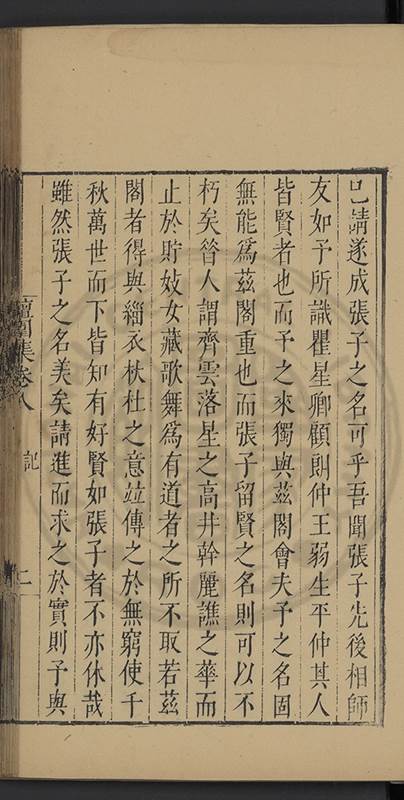 已請遂成張子之名可乎吾聞張子先後相師
友如予所識瞿星卿顧朗仲王弱生平仲其人
皆賢者也而予之來獨與茲閣會夫予之名固
無能爲茲閣重也而張子留賢之名則可以不
朽矣昝人謂齊雲落星之高井幹麗譙之華而
止於貯妓女藏歌舞爲有道者之所不取若茲
閣者得與緇衣杕杜之意竝傳之於無窮使千
秋萬世而下皆知有好賢如張子者不亦休哉
雖然張子之名美矣請進而求之於實則子與
集卷八
記
二